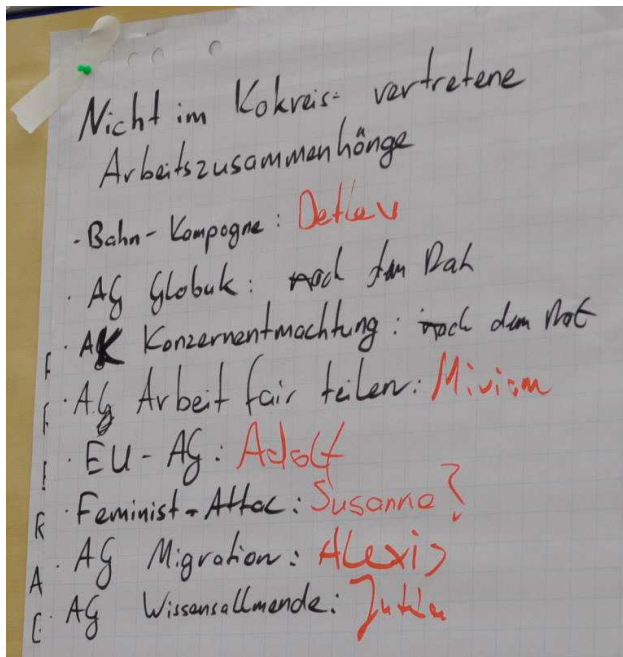 Nicht im Kokreis- vertretene
Arbeitszusammenhänge
- Bahn-Kampagne: Detlev
· AG Globuk: nach dem Rat
· AK Konzernentmachtung: nach dem Rat
· AG Arbeit fair teilen: Miriam
· EU-AG: Adolf
· Feminist-Attac: Susanne?
· AG Migration: Alexis
· AG Wissensallmende: Jutta